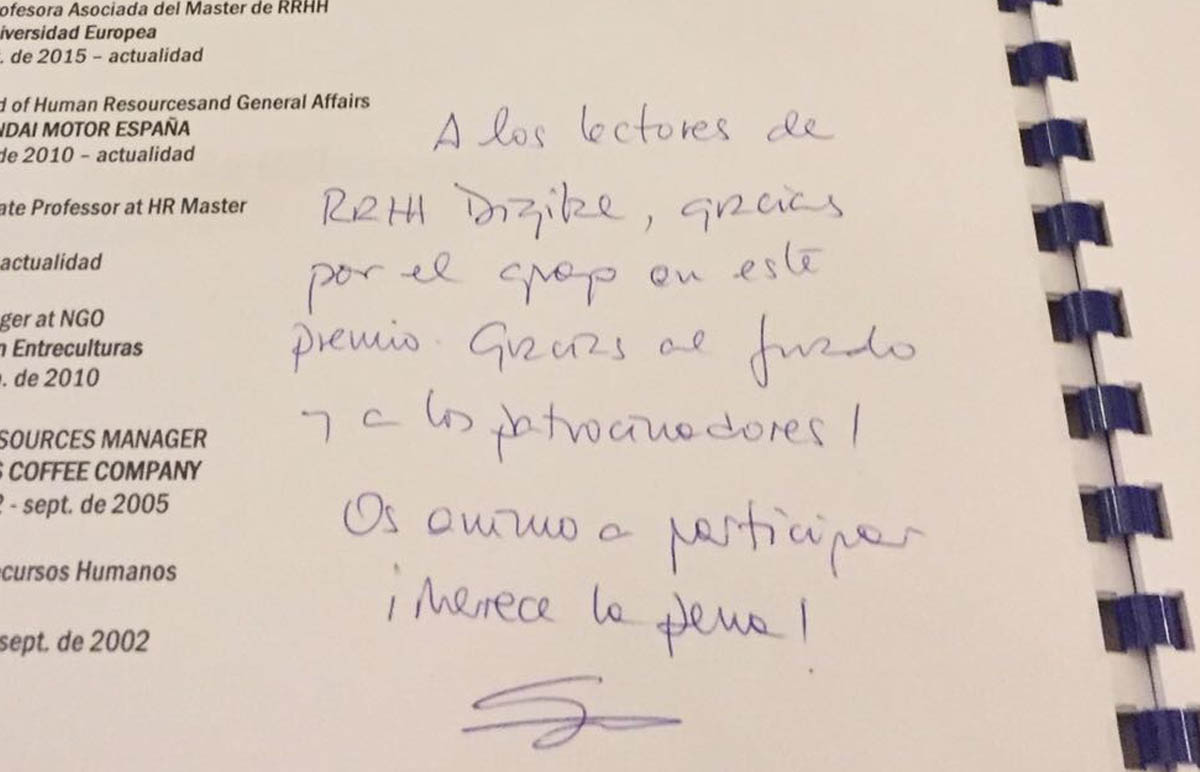 ofesora Asociada del Master de RRHH
iversidad Europea
. de 2015 – actualidad
d of Human Resourcesand General Affairs
NDAI MOTOR ESPAÑA
de 2010 – actualidad
ate Professor at HR Master
actualidad
ger at NGO
n Entreculturas
. de 2010
SOURCES MANAGER
S COFFEE COMPANY
2 - sept. de 2005
ecursos Humanos
sept. de 2002
A los lectores de
RRHH Digital, gracias
por el apoyo en este
premio. Gracias al jurado
y a los patrocinadores!
Os animo a participar
¡Merece la pena!